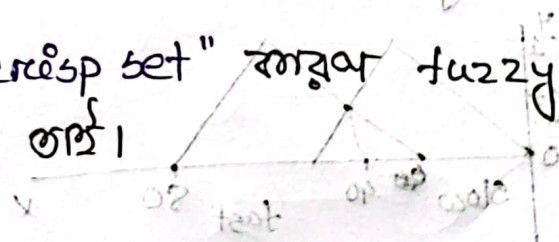 crisp set" কারণ fuzzy
তাই।